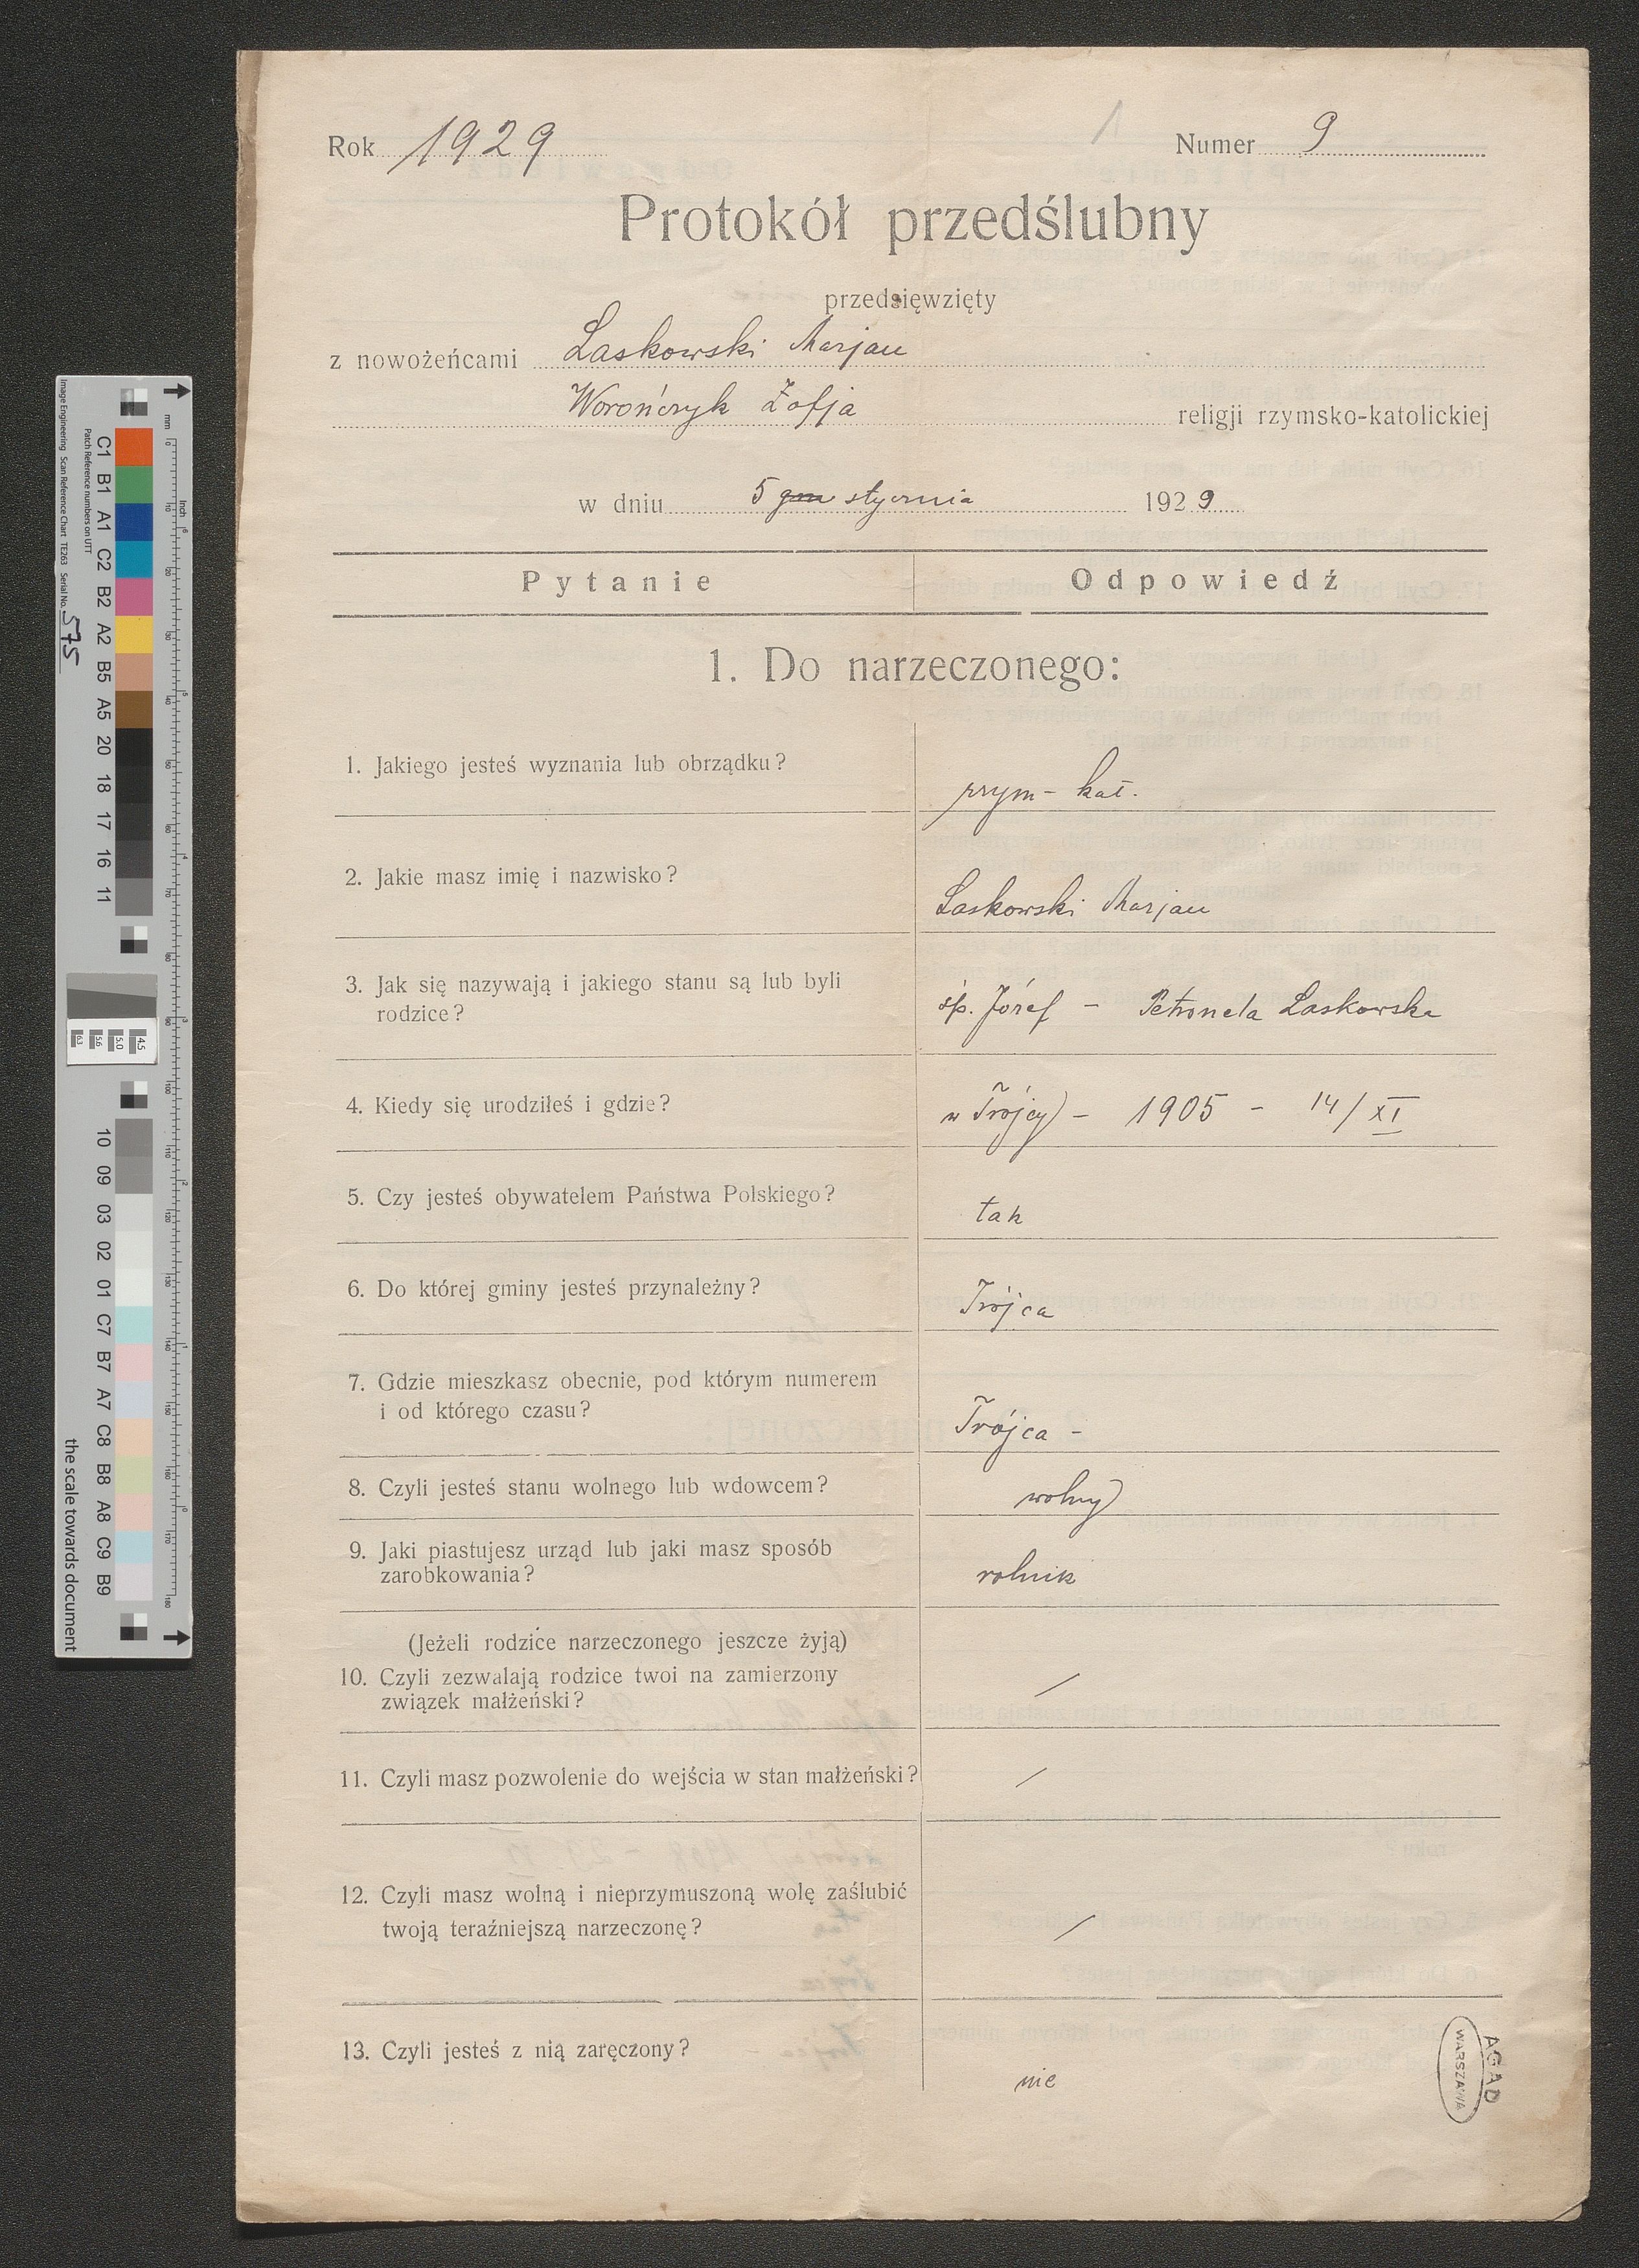 Rok 1929
1
Numer 9
Protokół przedślubny
przedsięwzięty
z nowożeńcami Laskowski Marjan
Worończyk Zofja religji rzymsko-katolickiej
w dniu 5 stycznia 1929
Pytanie Odpowiedź
1. Do narzeczonego:
1. Jakiego jesteś wyznania lub obrządku?
rzym - kat.
2. Jakie masz imię i nazwisko?
Laskowski Marjan
3. Jak się nazywają i jakiego stanu są lub byli
rodzice?
śp. Józef - Petronela Laskowska
4. Kiedy się urodziłeś i gdzie?
w Trójcy - 1905 - 14/XI
5. Czy jesteś obywatelem Państwa Polskiego?
tak
6. Do której gminy jesteś przynależny?
Trójca
7. Gdzie mieszkasz obecnie, pod którym numerem
i od którego czasu?
Trójca -
8. Czyli jesteś stanu wolnego lub wdowcem?
wolny
9. Jaki piastujesz urząd lub jaki masz sposób
zarobkowania?
rolnik
(Jeżeli rodzice narzeczonego jeszcze żyją)
10. Czyli zezwalają rodzice twoi na zamierzony
związek małżeński?
/
11. Czyli masz pozwolenie do wejścia w stan małżeński?
/
12. Czyli masz wolną i nieprzymuszoną wolę zaślubić
twoją teraźniejszą narzeczonę?
/
13. Czyli jesteś z nią zaręczony?
nie
AGAD
WARSZAWA
Image Engineering Scan Reference Chart TE263 Serial No. 575
Patch Reference numbers on UTT
C1 B1 A1 C2 B2 A2 B5 A5 20 18 17 16 11
10 09 03 02 01 C7 B7 A7 C8 B8 A8 C9 B9
mm
inch
the scale towards document